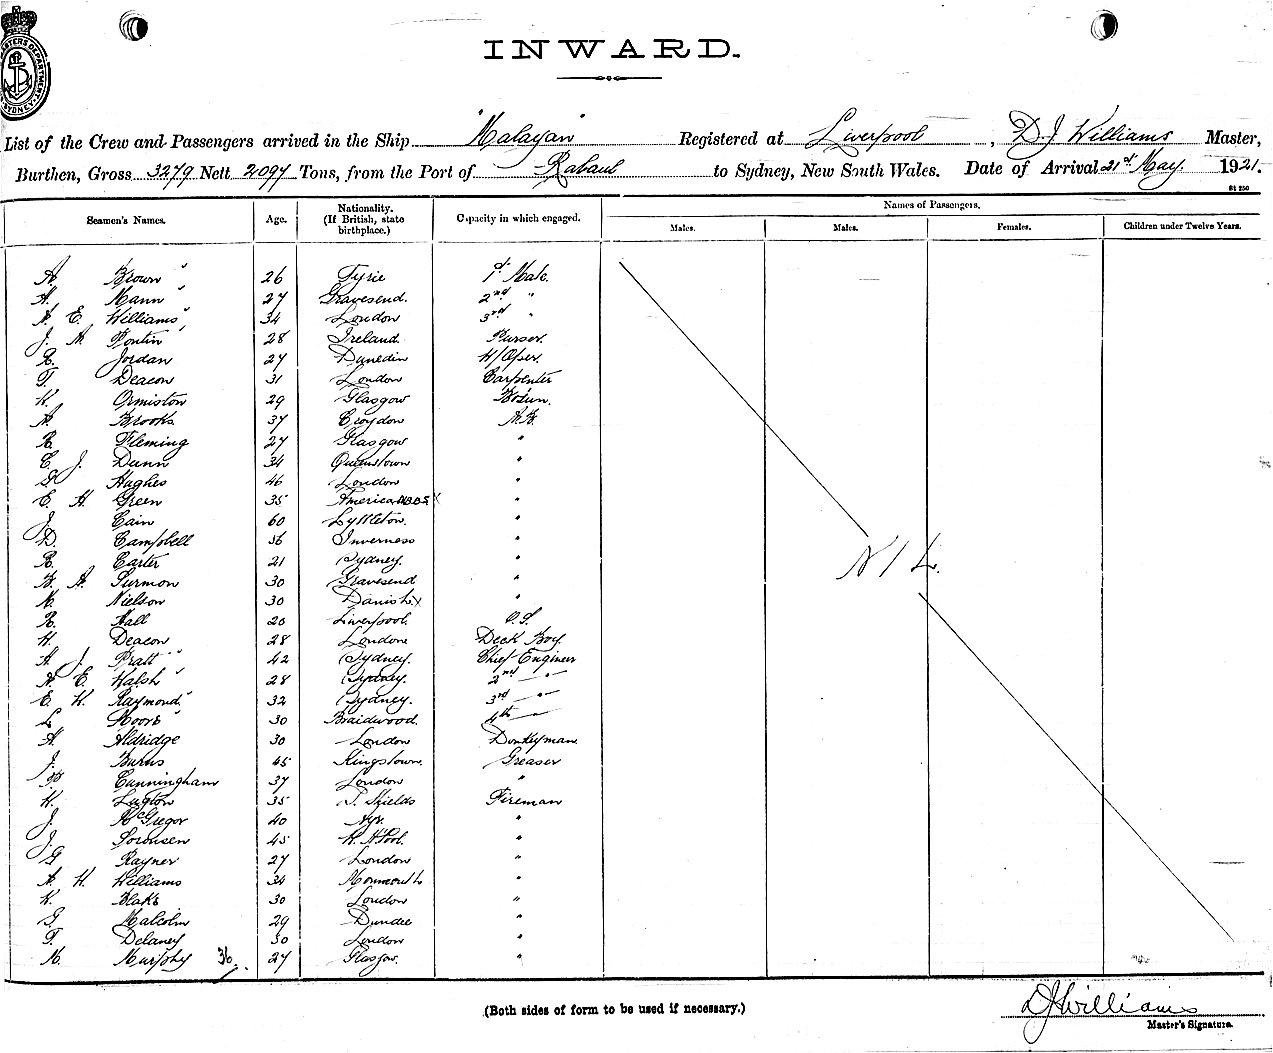 MASTERS DEPARTMENT SYDNEY
INWARD.
List of the Crew and Passengers arrived in the Ship "Malayan" Registered at Liverpool, D. J. Williams Master,
Burthen, Gross 3279 Nett 2097 Tons, from the Port of Rabaul to Sydney, New South Wales. Date of Arrival 21st May. 1921.
St 250
Seamen's Names. Age. Nationality. (If British, state birthplace.) Capacity in which engaged. Names of Passengers.
Males. Males. Females. Children under Twelve Years.
A. Brown " 26 Tyrie 1st Mate.
A. Mann " 27 Gravesend. 2nd "
A. E. Williams " 34 London 3rd "
J. A. Pontin 28 Ireland. Purser.
R. Jordan 27 Dunedin W/Oper.
T. Deacon 31 London Carpenter
W. Ormiston 29 Glasgow Bosun.
A. Brooks 37 Croydon A.B.
R. Fleming 27 Glasgow "
C. J. Dunn 34 Queenstown "
Hughes 46 London "
E. A. Green 35 America "
J. Cain 60 Lyttleton. "
D. Campbell 36 Inverness "
R. Carter 21 Sydney. "
B. A. Surmon 30 Gravesend "
N. Nielson 30 Danish X "
R. Hall 20 Liverpool. O.S.
H. Deacon 28 London Deck Boy
A. J. Pratt " 42 Sydney. Chief Engineer
A. E. Walsh " 28 Sydney. 2nd "
E. W. Raymond " 32 Sydney. 3rd "
L. Moore " 30 Braidwood. 4th
A. Aldridge 30 London Donkeyman.
J. Burns 45 Kingstown. Greaser
P. Cunningham 37 London "
W. Lugton 35 S. Shields Fireman
J. McGregor 40 Ayr. "
J. Sorensen 45 W. H'Pool. "
G. Rayner 27 London "
A. H. Williams 34 Monmouth "
W. Blake 30 London "
G. Malcolm 29 Dundee "
T. Delaney 30 London "
M. Murphy 36. 27 Glasgow. "
NIL.
(Both sides of form to be used if necessary.)
D J Williams
Master's Signature.